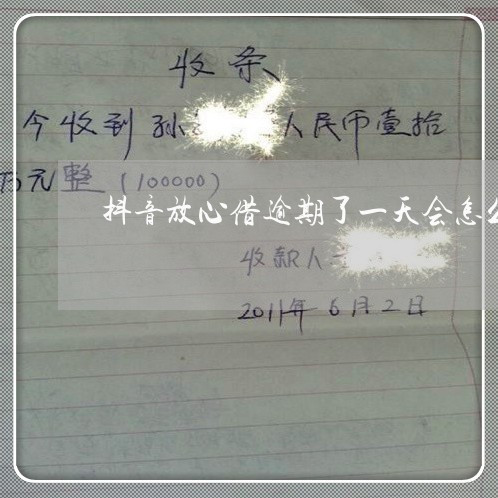 收条
今收到孙 人民币壹拾
万元整（100000）
抖音放心借逾期了一天会怎
收款人
2011年6月2日